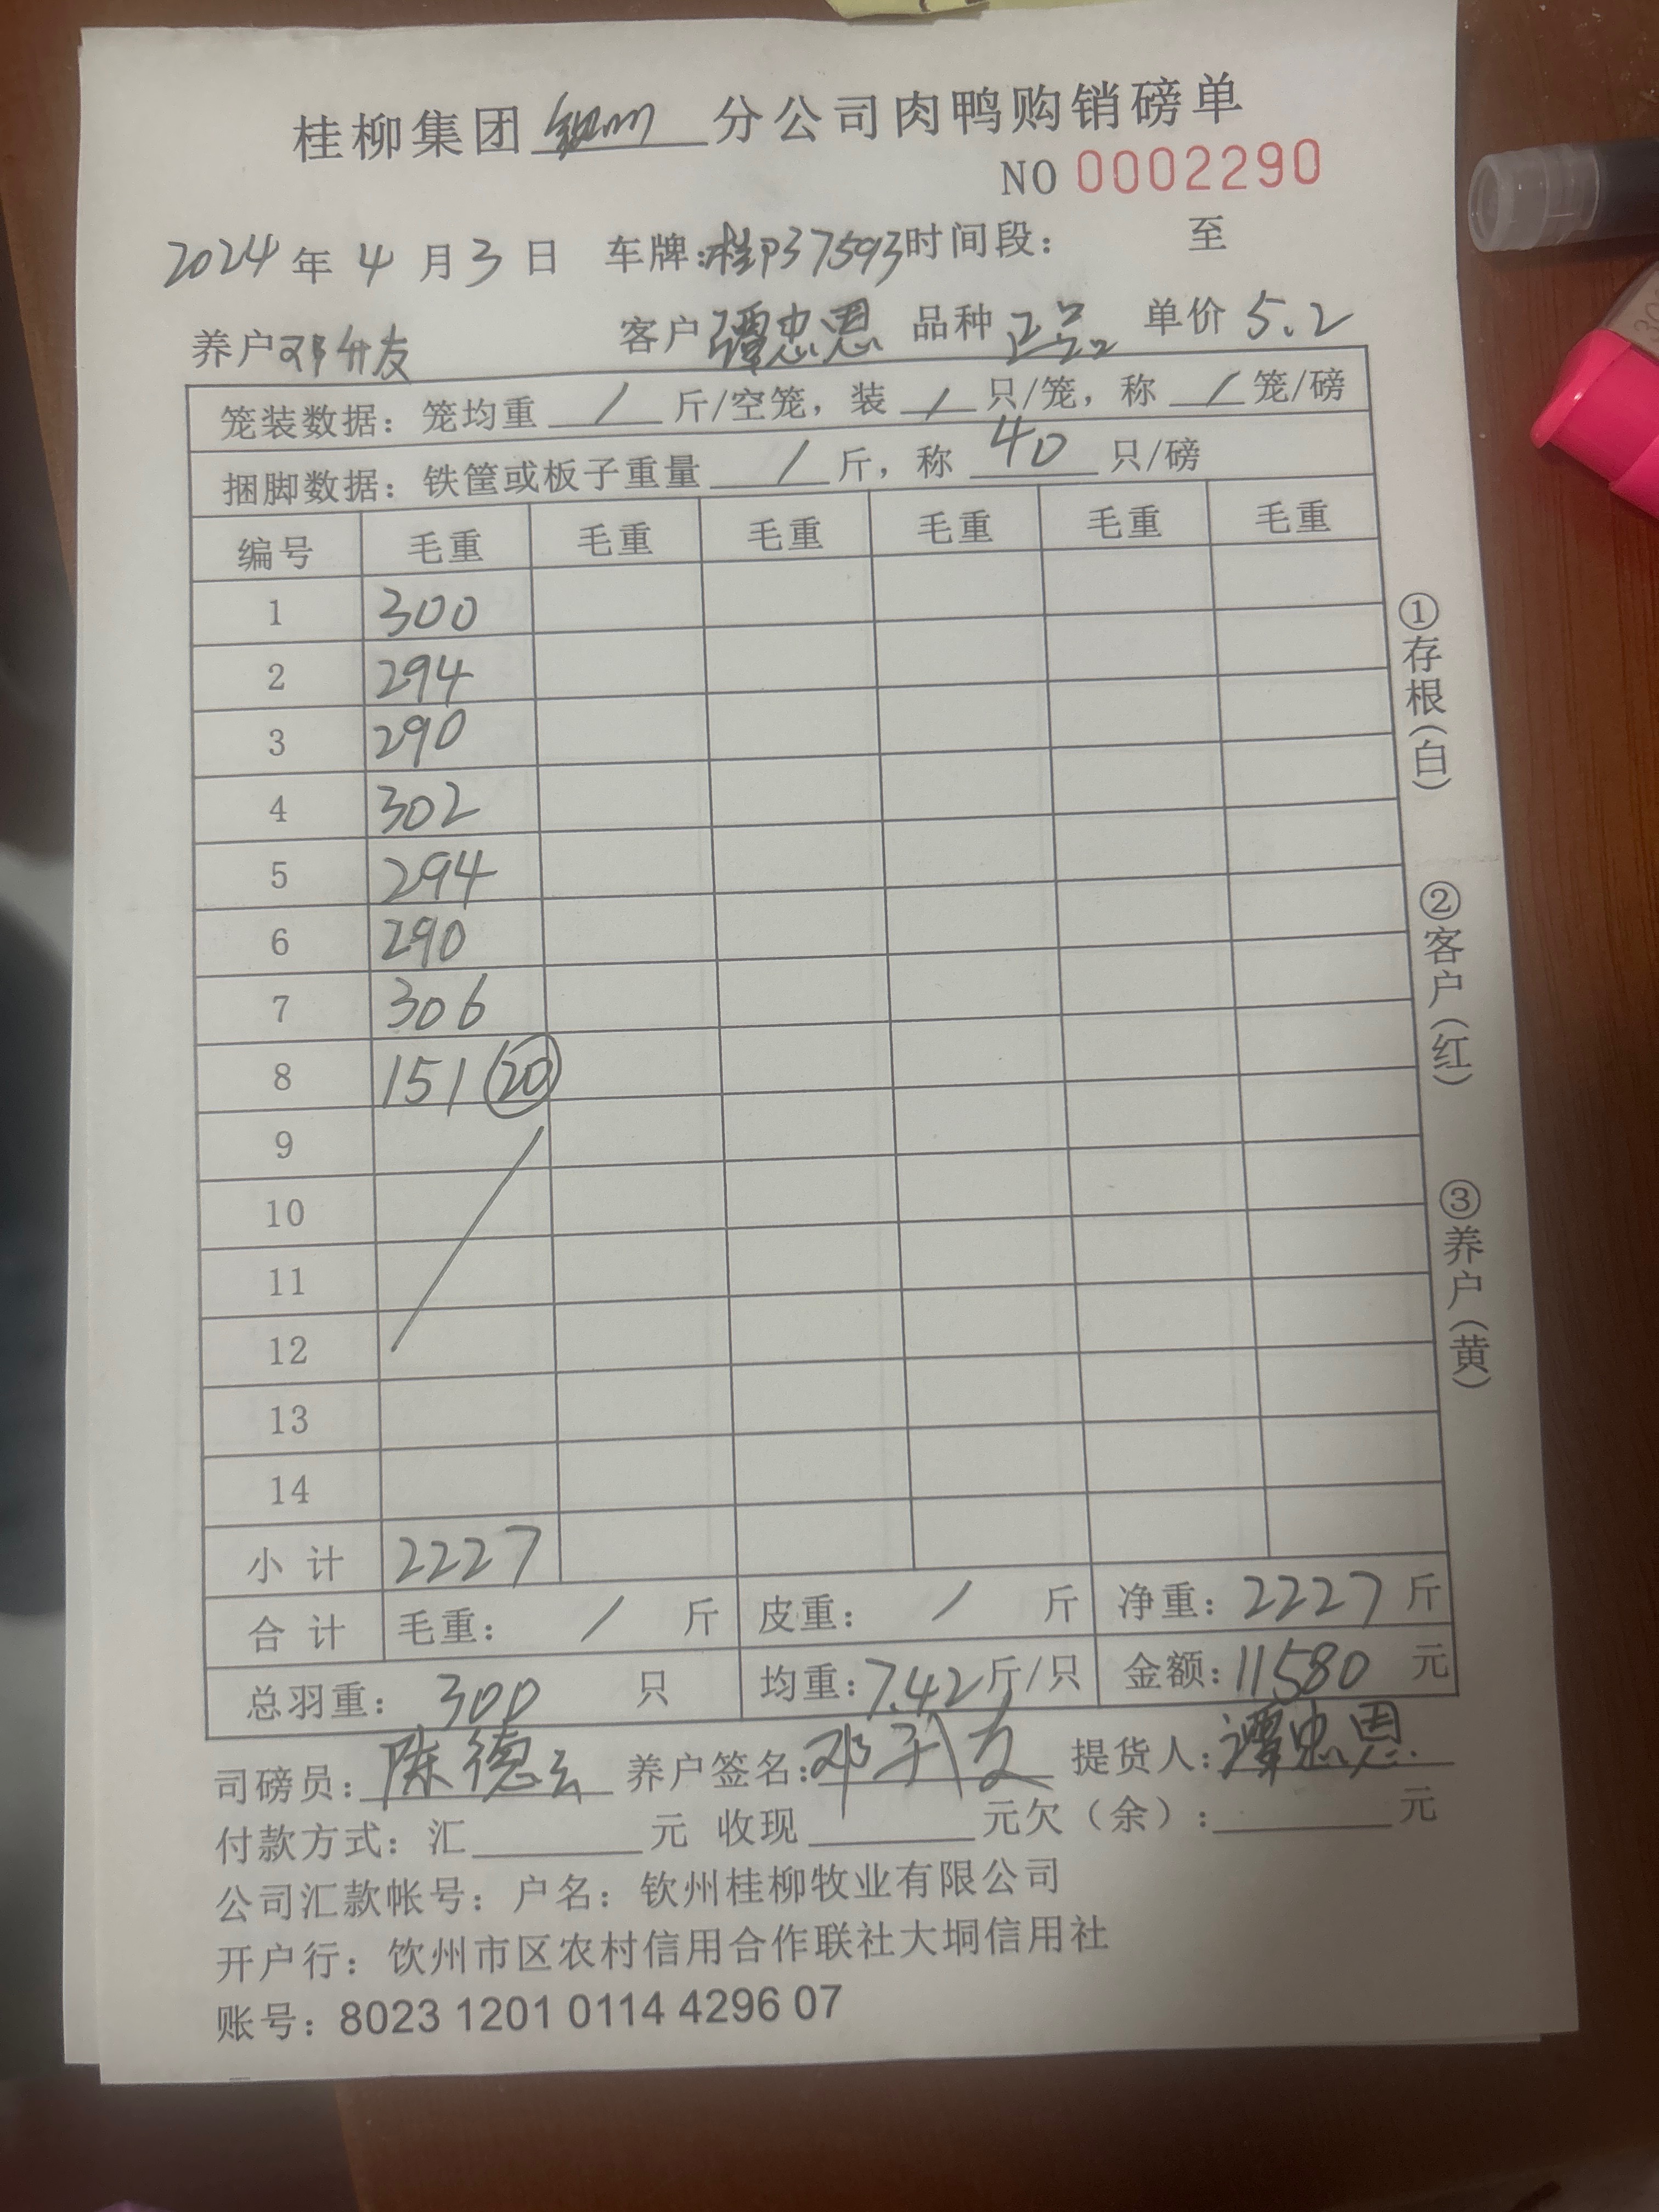 桂柳集团钦州分公司肉鸭购销磅单
NO 0002290
2024年4月3日 车牌:桂P37593时间段: 至
养户 邓 友 客户谭忠恩 品种正品 单价5.2
笼装数据:笼均重 / 斤/空笼,装 / 只/笼,称 / 笼/磅
捆脚数据:铁筐或板子重量 / 斤,称 40 只/磅
编号 毛重 毛重 毛重 毛重 毛重 毛重
1 300
2 294
3 290
4 302
5 294
6 290
7 306
8 151 ⑳
9
10
11
12
13
14
小计 2227
合计 毛重: / 斤 皮重: / 斤 净重:2227斤
总羽重:300 只 均重:7.42斤/只 金额:11580 元
司磅员:陈德云 养户签名:邓 友 提货人:谭忠恩
付款方式:汇 元 收现 元欠(余): 元
公司汇款帐号:户名:钦州桂柳牧业有限公司
开户行:饮州市区农村信用合作联社大垌信用社
账号:8023 1201 0114 4296 07
①存根(白)
②客户(红)
③养户(黄)